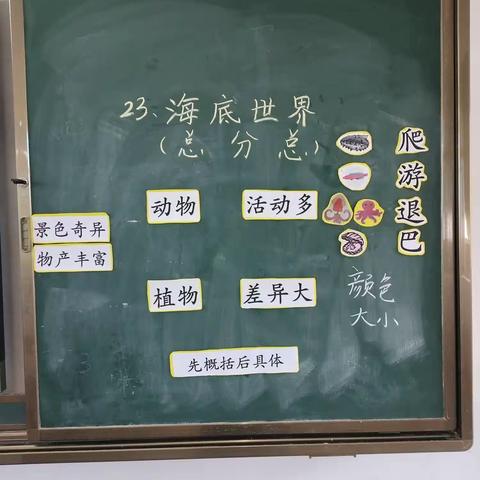 23、海底世界
(总 分 总)
爬
游
退
巴
动物
活动多
景色奇异
物产丰富
植物
差异大
颜色
大小
先概括后具体